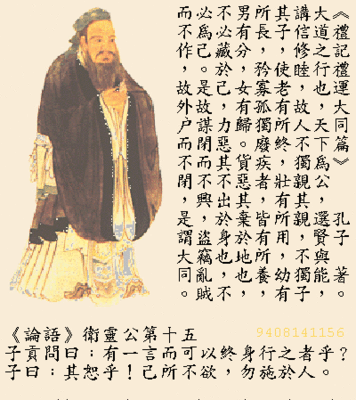 《禮記禮運大同篇》　孔子　著。
大道之行也，天下為公，選賢與能，
講信修睦，故人不獨親其親，不獨子
其子，使老有所終，壯有所用，幼有
所長，矜寡孤獨廢疾者，皆有所養，
男有分，女有歸。貨惡其棄於地也，
不必藏於己，力惡其不出於身也，不
必為己。是故謀閉而不興，盜竊亂賊
而不作，故外户而不閉，是謂大同。
《論語》衛靈公第十五
9408141156
子貢問曰：有一言而可以終身行之者乎？
子曰：其恕乎！己所不欲，勿施於人。